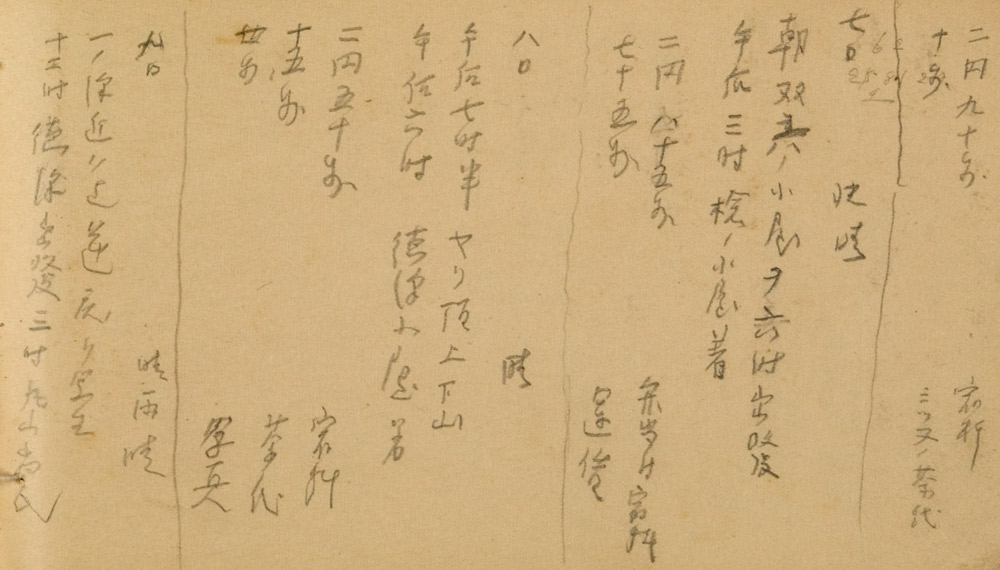 二円九十銭 宿料
十銭 三ツ又ノ茶代
七日 快晴
朝双六ノ小屋ヲ六時出発
午后三時槍ノ小屋着
二円八十五銭 弁当付宿料
七十五銭
八日 晴
午后七時半ヤリ頂上下山
午后六時 徳沢小屋着
二円五十銭 宿料
十五銭 茶代
廿銭 写真
九日 晴雨晴
一ノ沢近く迄逆戻り
十二時徳沢出発三時